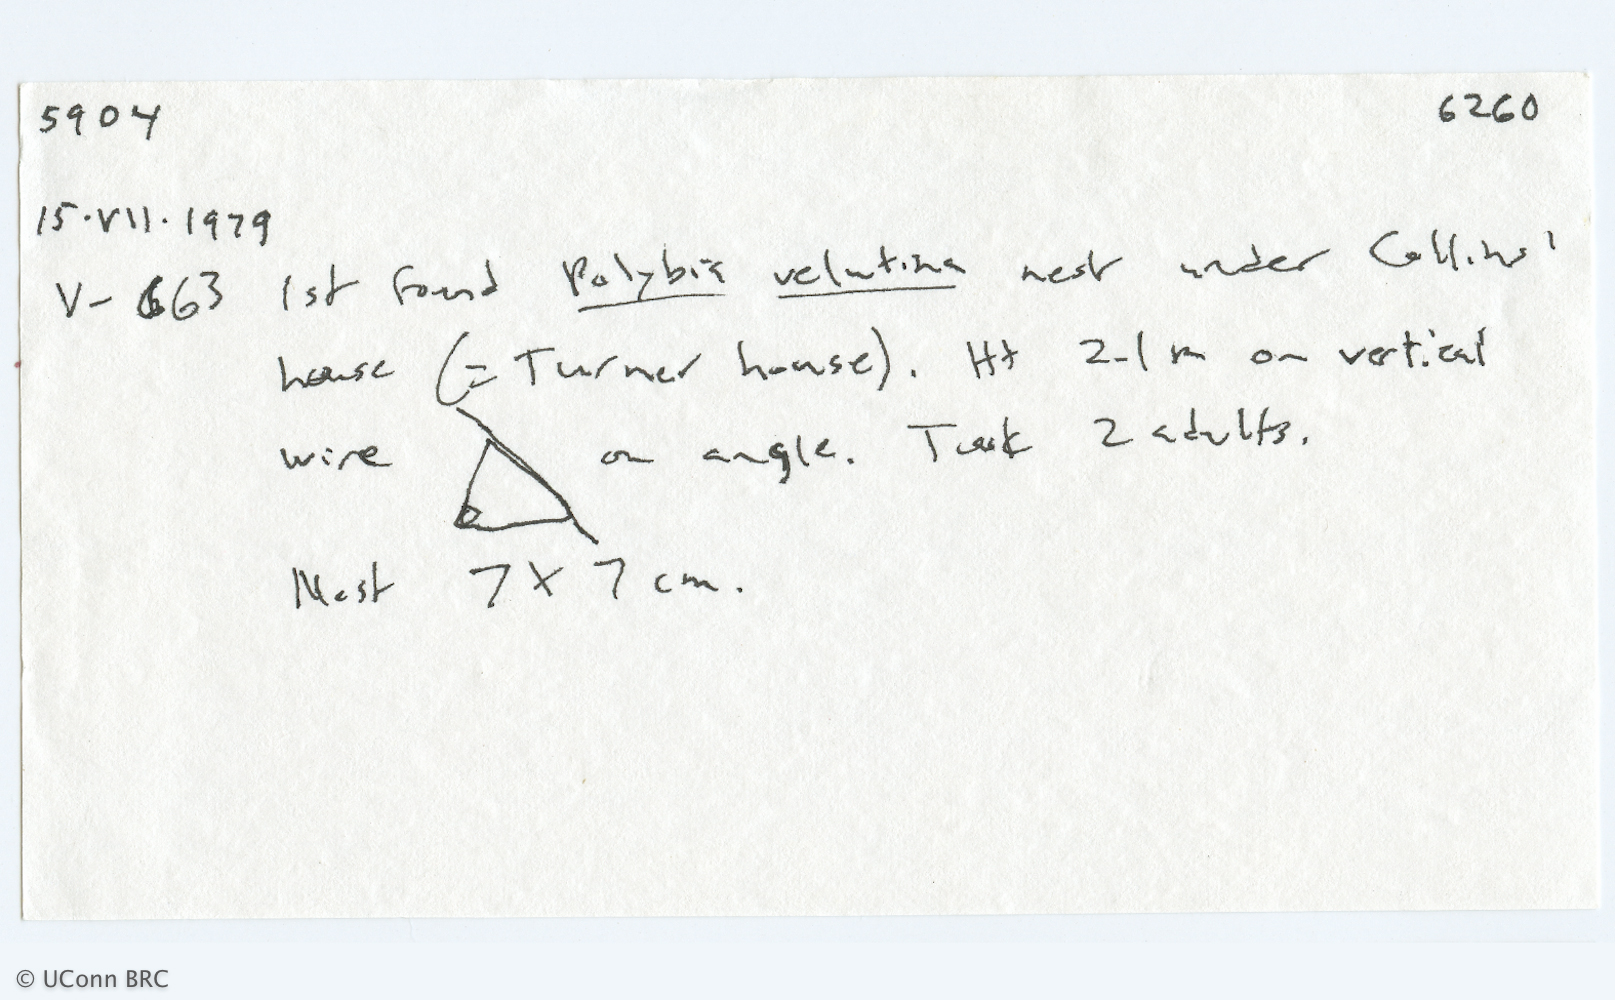 5904 6260
15·VII·1979
V-663 1st found Polybia velutina nest under Collins'
house (= Turner house). Ht 2.1 m on vertical
wire on angle. Took 2 adults.
Nest 7 X 7 cm.
© UConn BRC